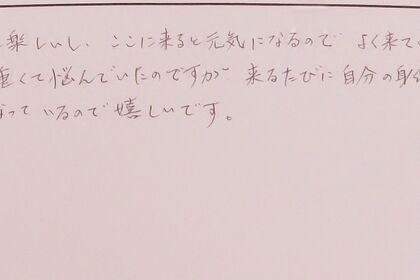 楽しいし、ここに来ると元気になるので よく来て
重くて悩んでいたのですが 来るたびに自分の身
なっているので嬉しいです。